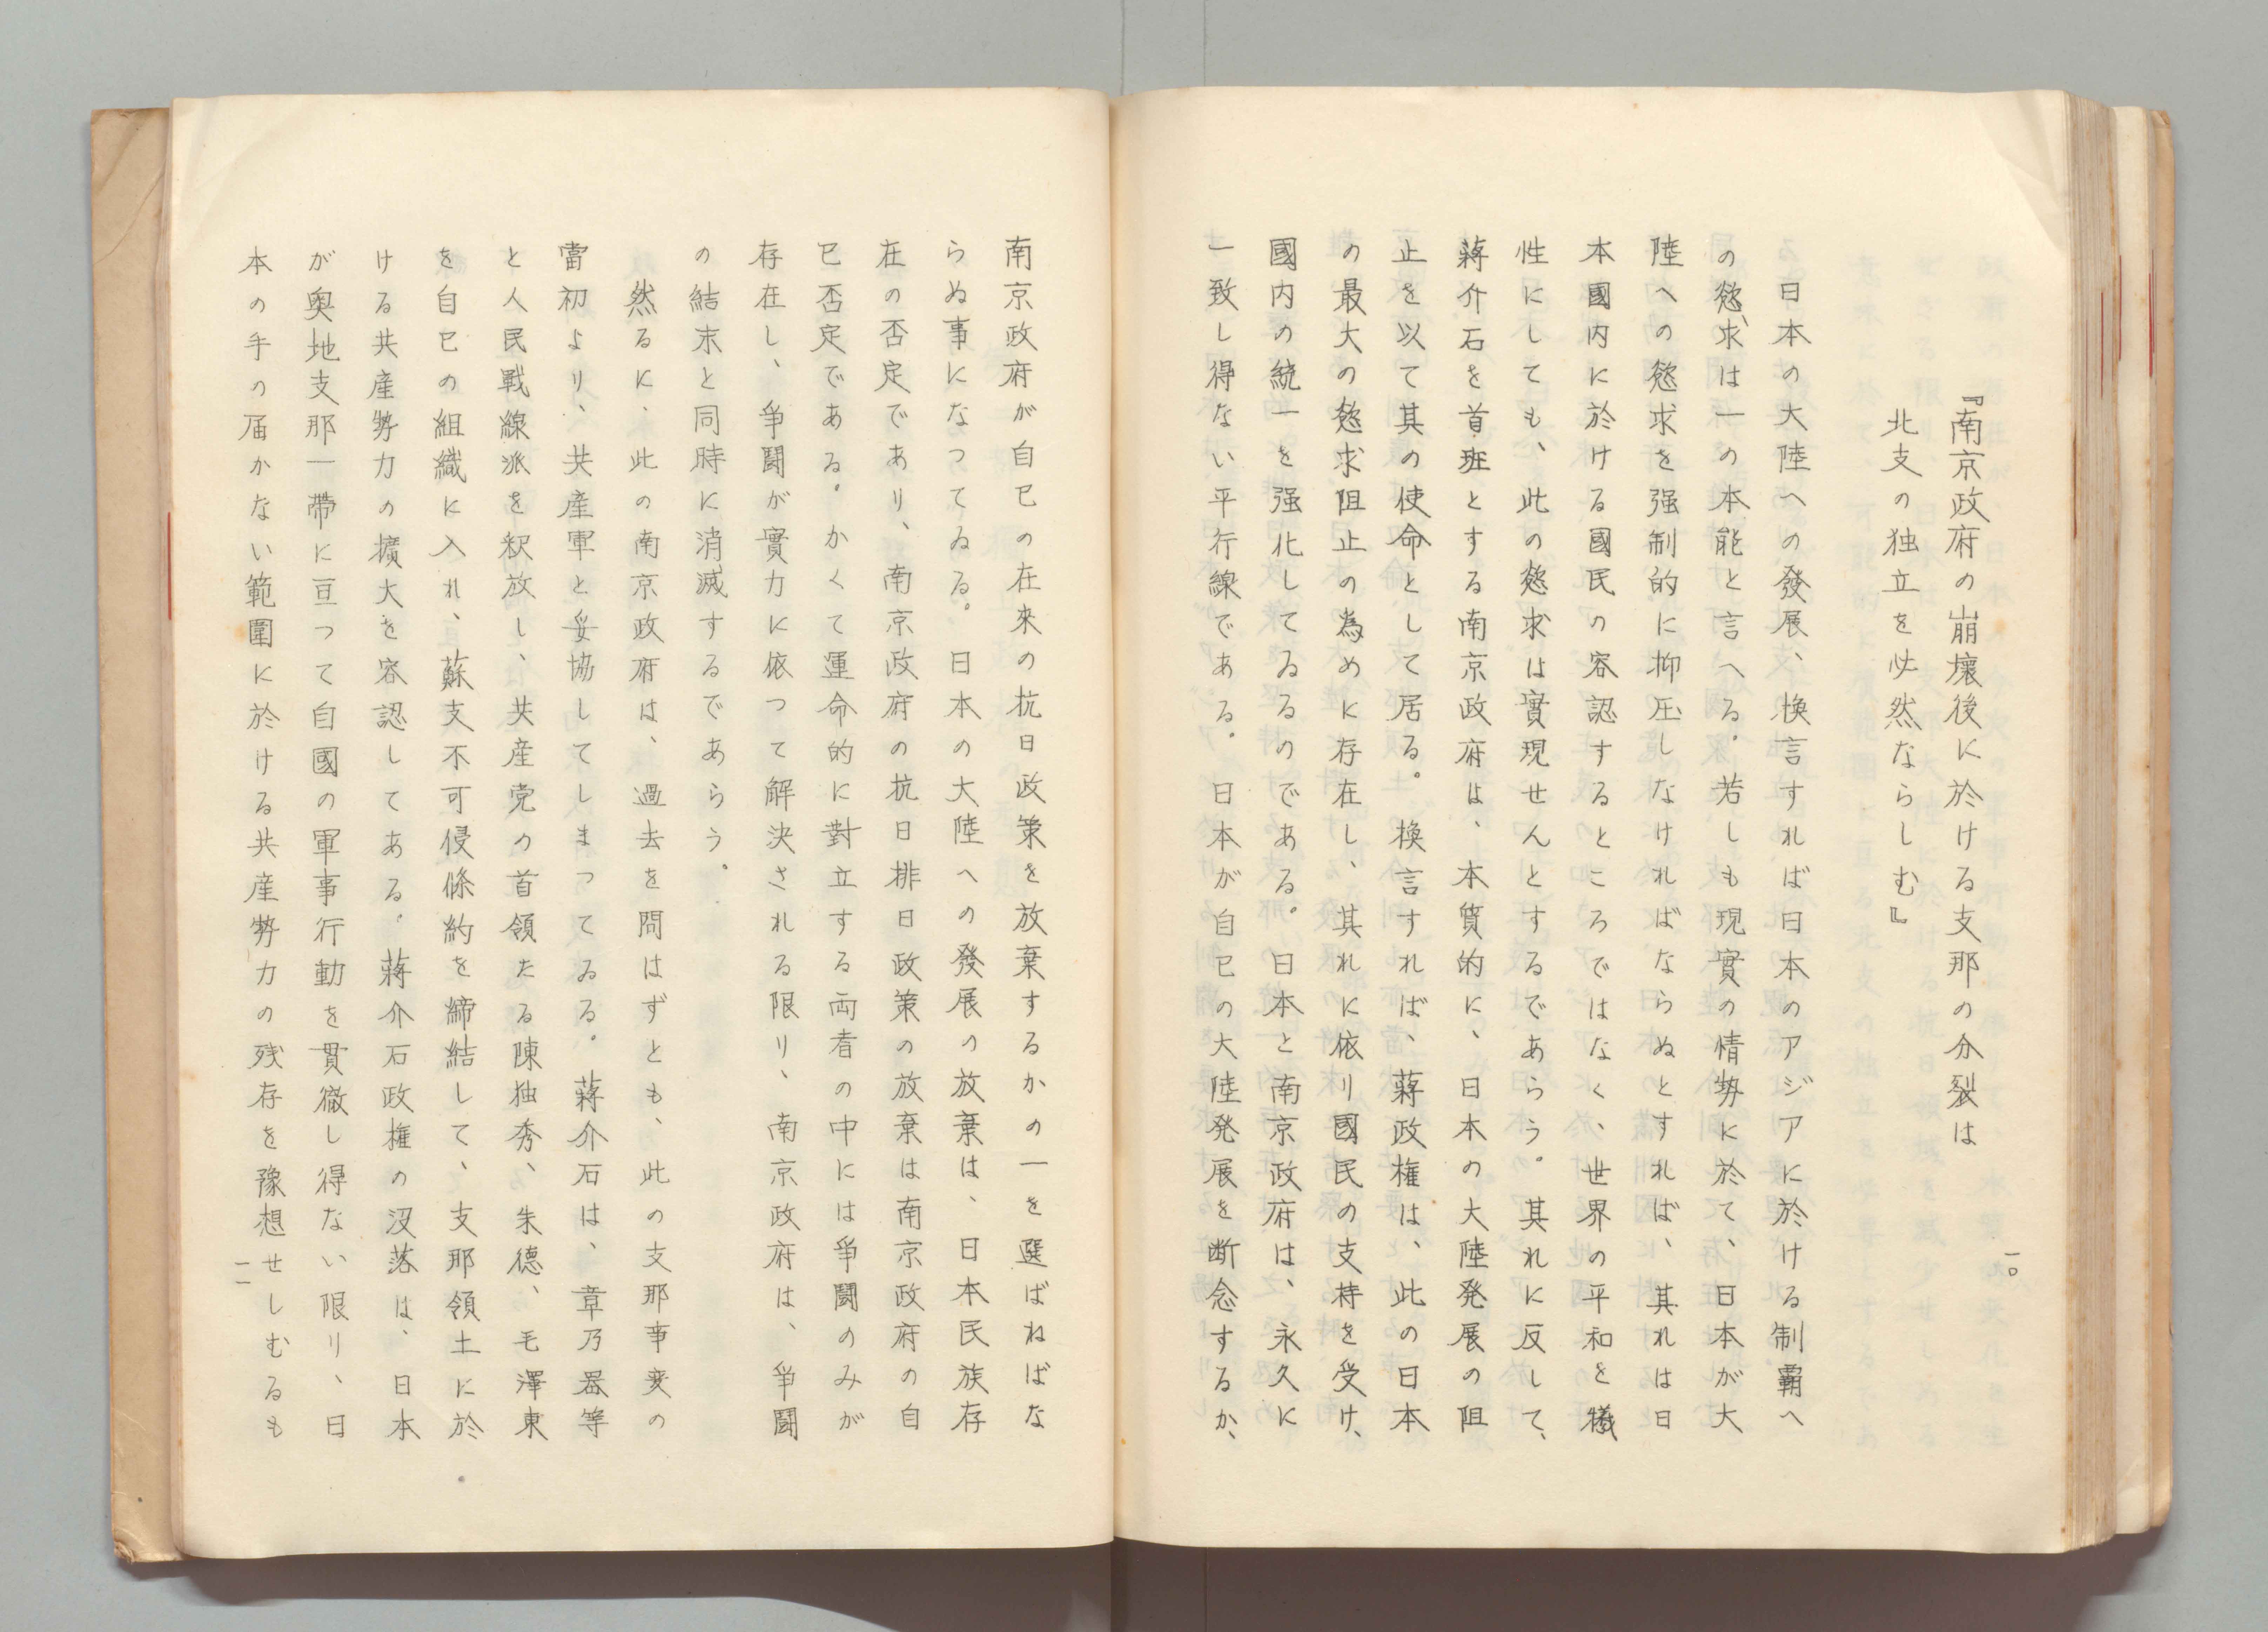 一〇
『南京政府の崩壊後に於ける支那の分裂は
北支の独立を必然ならしむ』
日本の大陸への發展、換言すれば日本のアジアに於ける制覇へ
の慾求は一の本能と言へる。若しも現實の情勢に於て、日本が大
陸への慾求を强制的に抑圧しなければならぬとすれば、其れは日
本國内に於ける國民の容認するところではなく、世界の平和を犠
性にしても、此の慾求は實現せんとするであらう。其れに反して、
蔣介石を首班とする南京政府は、本質的に、日本の大陸発展の阻
止を以て其の使命として居る。換言すれば、蔣政権は、此の日本
の最大の慾求阻止の為めに存在し、其れに依り國民の支持を受け、
國内の統一を强化してゐるのである。日本と南京政府は、永久に
一致し得ない平行線である。日本が自已の大陸発展を断念するか、
南京政府が自已の在來の抗日政策を放棄するかの一を選ばねばな
らぬ事になつてゐる。日本の大陸への發展の放棄は、日本民族存
在の否定であり、南京政府の抗日排日政策の放棄は南京政府の自
已否定である。かくて運命的に對立する両者の中には爭闘のみが
存在し、爭闘が實力に依つて解決される限り、南京政府は、爭闘
の結末と同時に消滅するであらう。
然るに、此の南京政府は、過去を問はずとも、此の支那事変の
當初より、共産軍と妥協してしまつてゐる。蔣介石は、章乃器等
と人民戰線派を釈放し、共産党の首領たる陳独秀、朱德、毛澤東
を自已の組織に入れ、蘇支不可侵條約を締結して、支那領土に於
ける共産勢力の擴大を容認してある。蔣介石政権の没落は、日本
が奥地支那一帶に亘つて自國の軍事行動を貫徹し得ない限り、日
本の手の届かない範圍に於ける共産勢力の残存を豫想せしむるも
一一